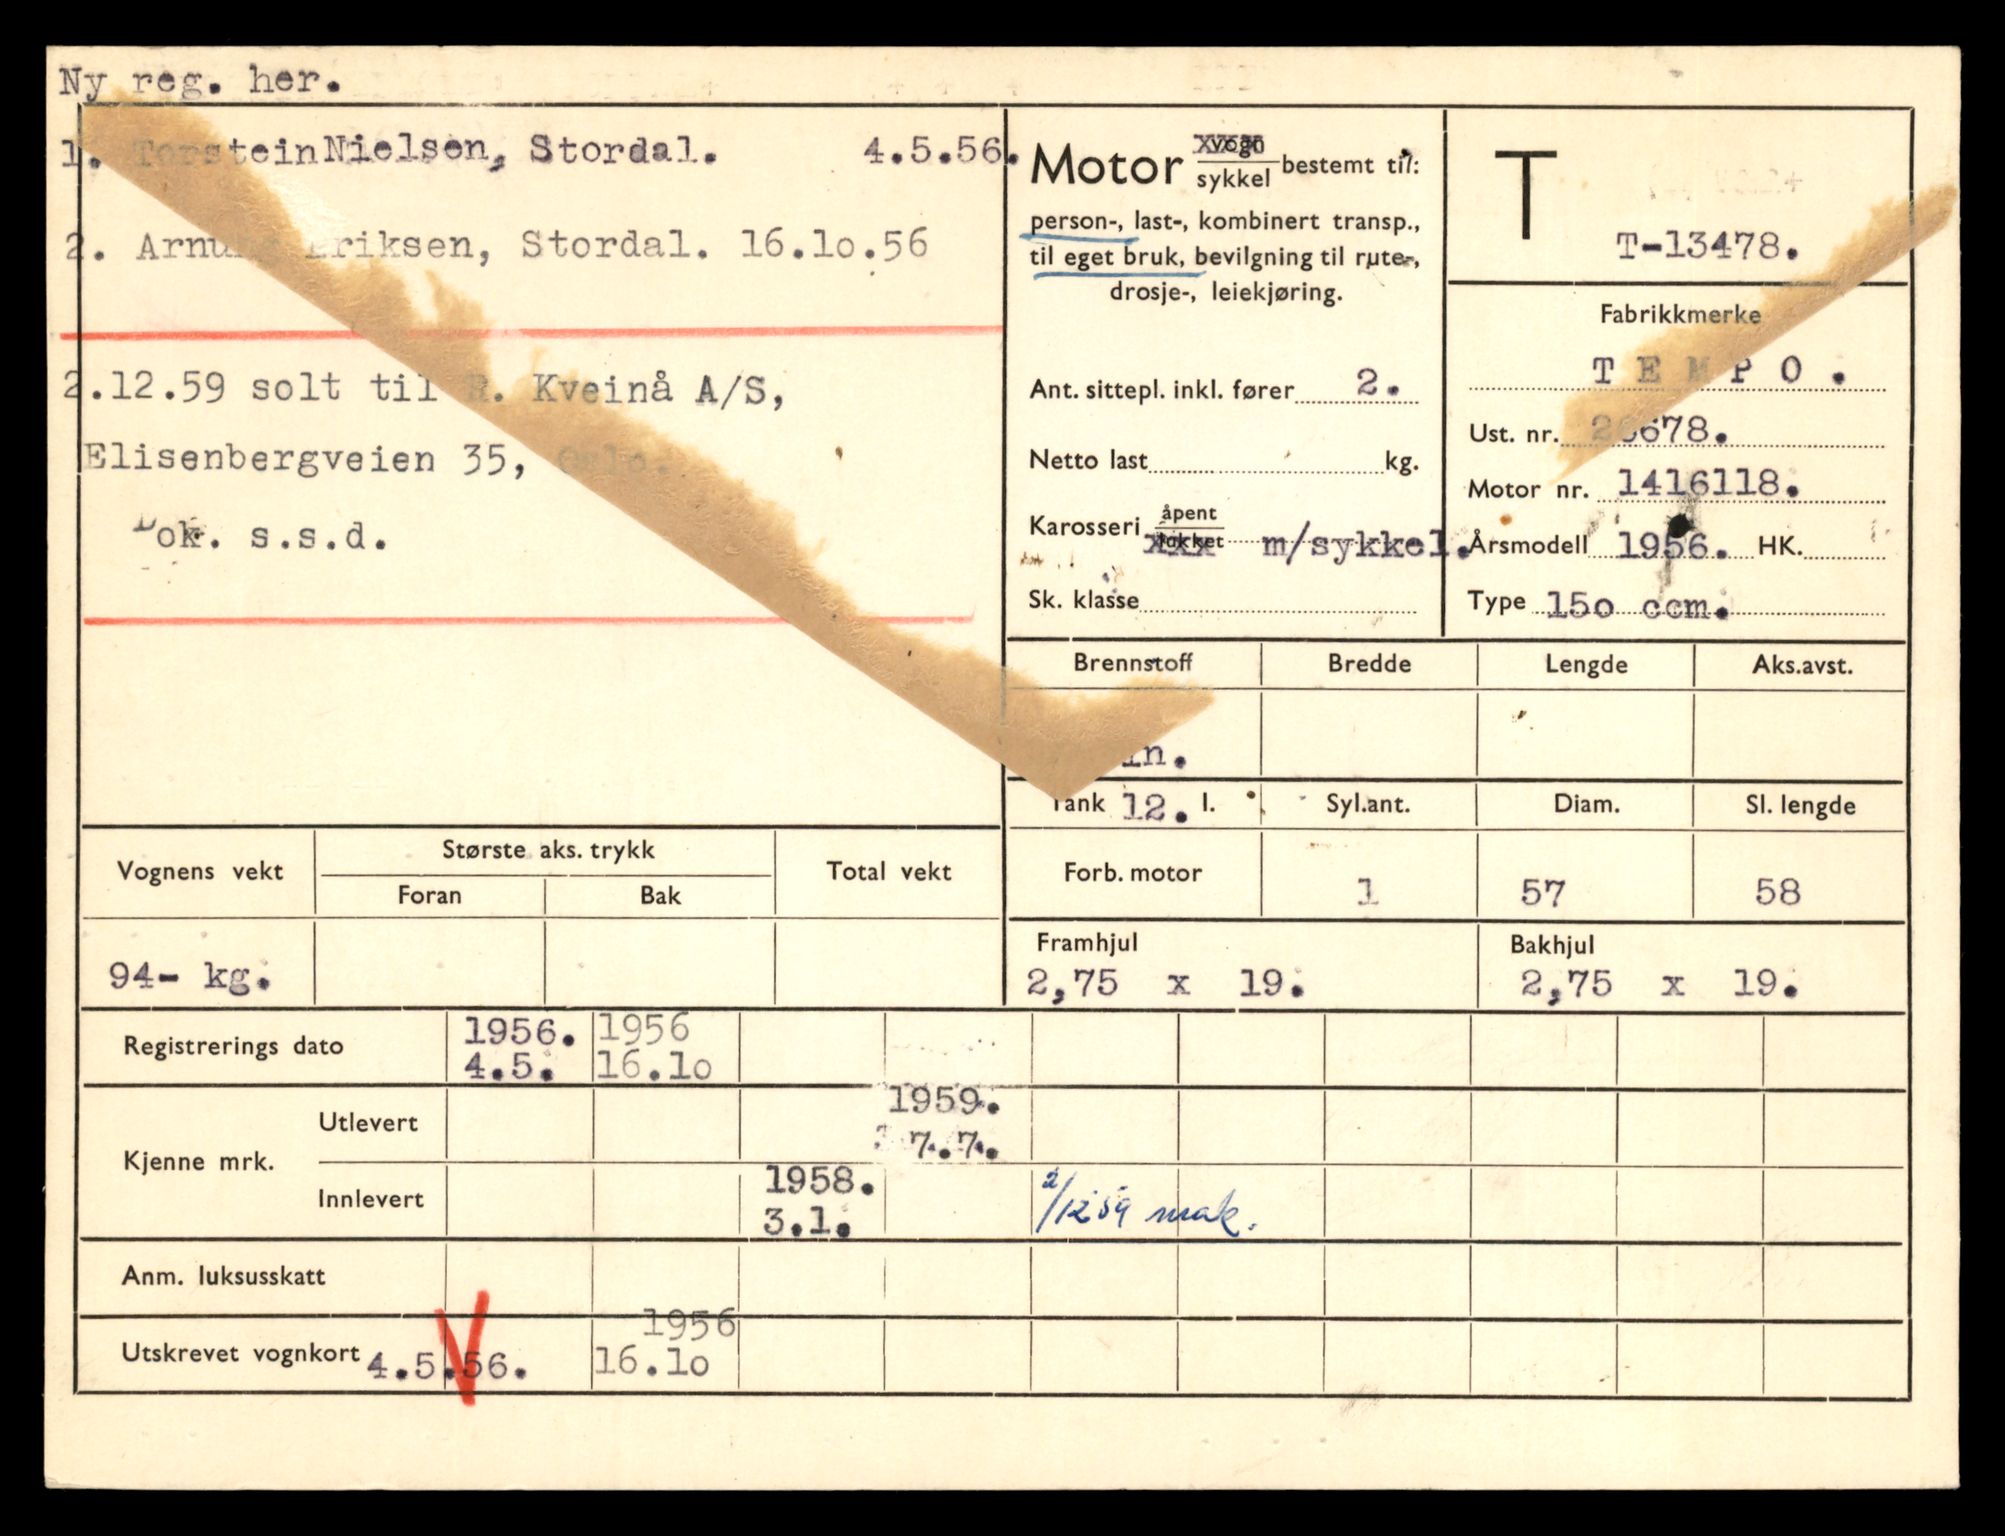 Ny reg. her.
1. Torstein Nielsen, Stordal. 4.5.56.
2. Eriksen, Stordal. 16.1o.56
2.12.59 solt til R. Kveinå A/S,
Elisenbergveien 35, Oslo.
Dok. s.s.d.
Motor vogn
sykkel bestemt til:
person-, last-, kombinert transp.,
til eget bruk, bevilgning til rute-,
drosje-, leiekjøring.
Ant. sittepl. inkl. fører 2.
Netto last kg.
Karosseri åpent
lukket xxx m/sykkel.
Sk. klasse
T
T-13478.
Fabrikkmerke
T E M P O .
Ust. nr. 678.
Motor nr. 1416118.
Årsmodell 1956. HK.
Type 15o ccm.
Brennstoff Bredde Lengde Aks.avst.
in.
Tank 12. l. Syl.ant. Diam. Sl. lengde
Forb. motor 1 57 58
Framhjul Bakhjul
2,75 x 19. 2,75 x 19.
Vognens vekt Største aks. trykk Total vekt
Foran Bak
94- kg.
Registrerings dato 1956. 1956
4.5. 16.1o
Kjenne mrk. Utlevert 1959.
7.7.
Innlevert 1958.
3.1. 2/12 59 mak.
Anm. luksusskatt
Utskrevet vognkort 4.5.56. 1956
16.1o